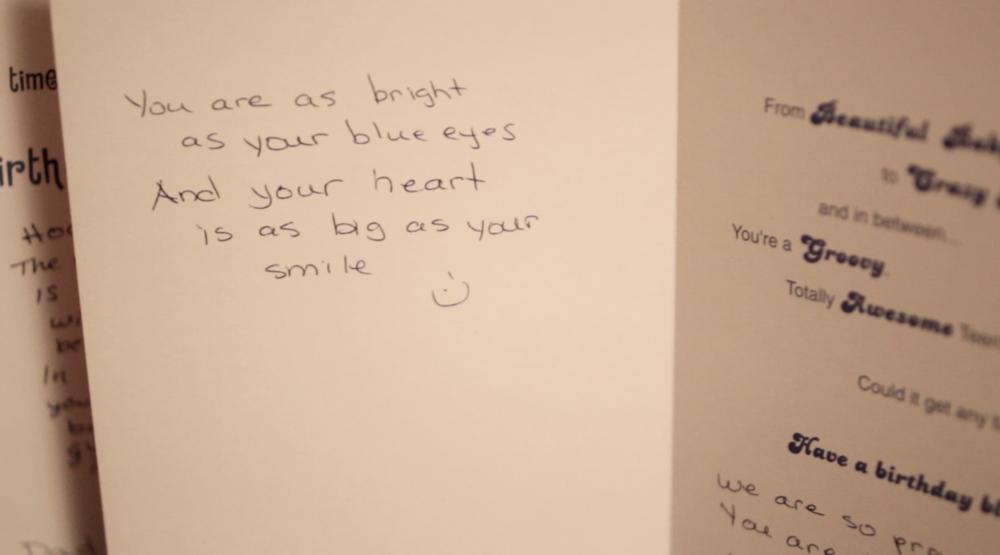 time
irth
The
is
be
In
You are as bright
as your blue eyes
And your heart
is as big as your
smile
From Beautiful
to Crazy
and in between...
You're a Groovy,
Totally Awesome
Could it get any
Have a birthday
we are so
You are